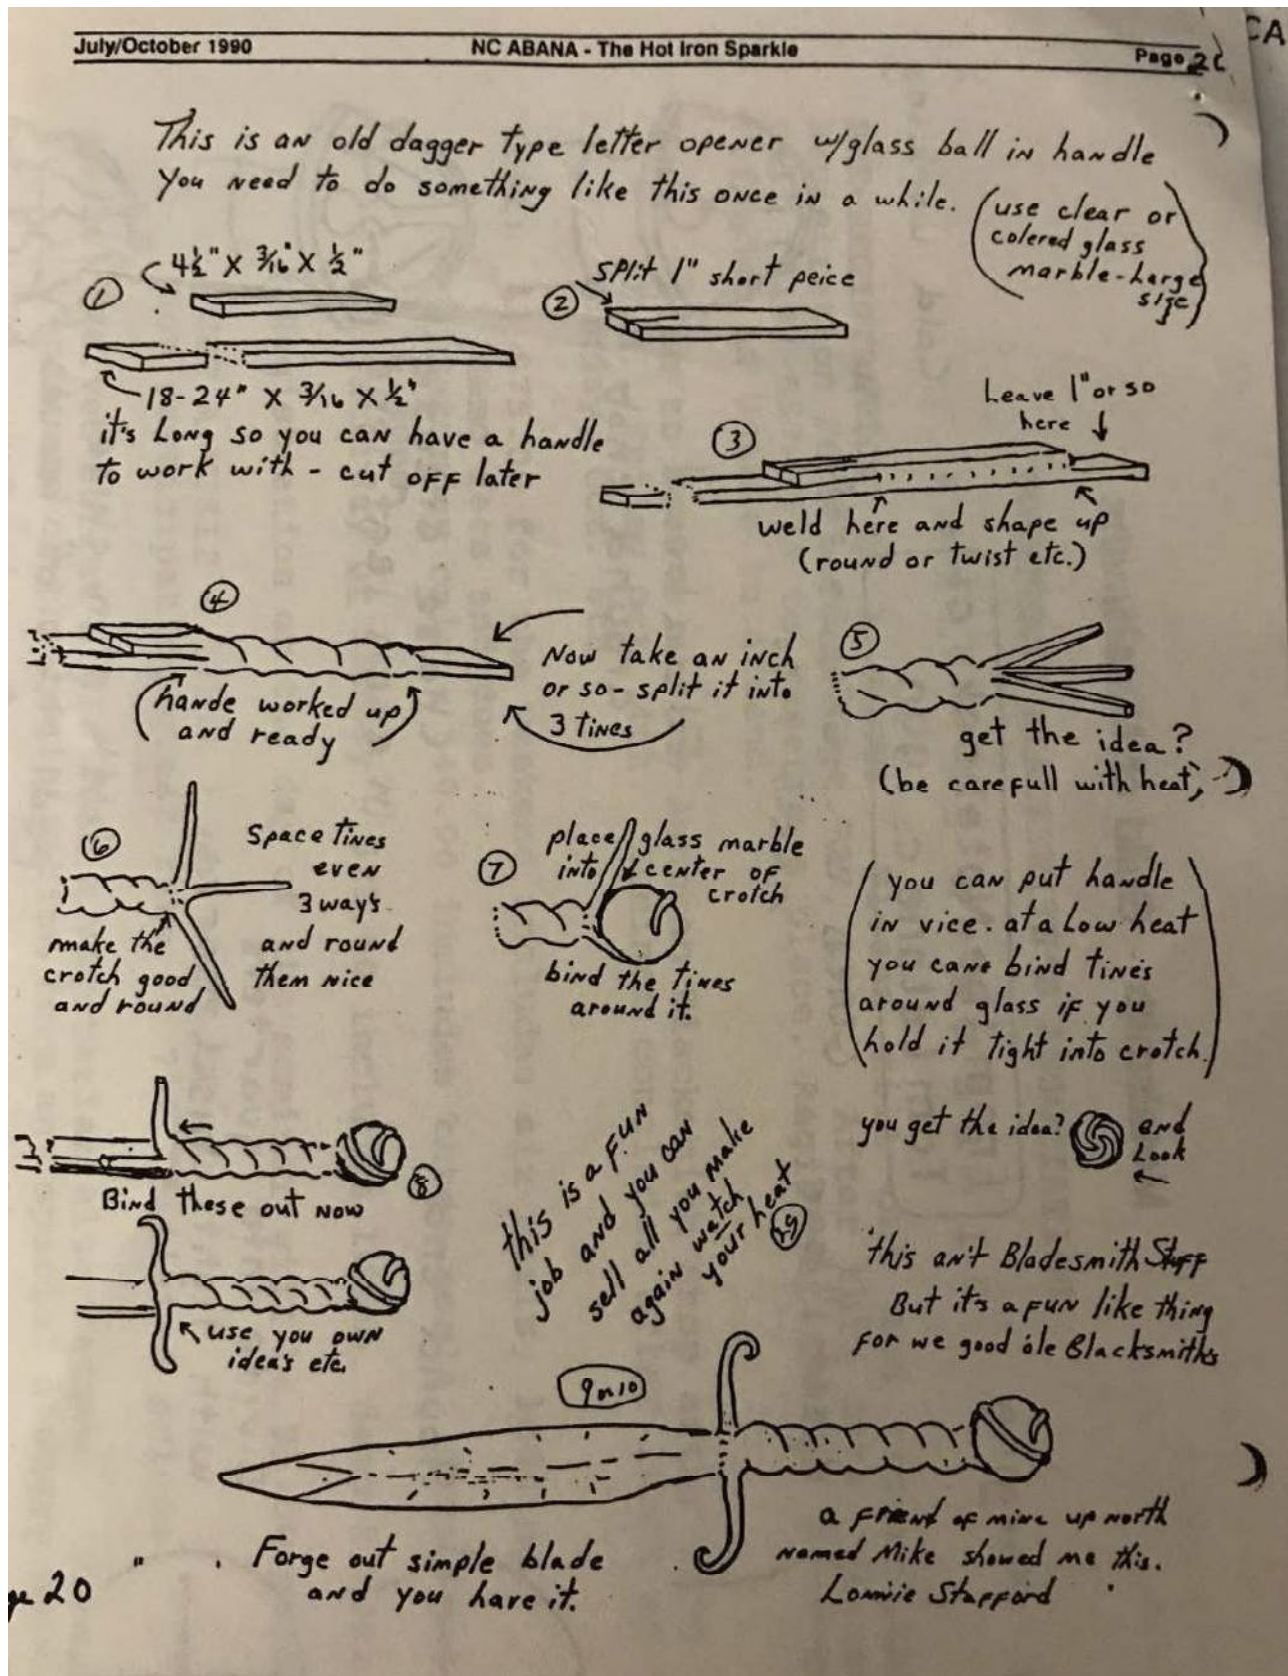 July/October 1990
NC ABANA - The Hot Iron Sparkle
Page
CA
This is an old dagger type letter opener w/glass ball in handle
You need to do something like this once in a while.
(use clear or
colered glass
marble - Large
size)
①
4½" X 3/16" X ½"
18-24" X 3/16 X ½"
it's Long so you can have a handle
to work with - cut off later
②
split 1" short peice
③
Leave 1" or so
here
weld here and shape up
(round or twist etc.)
④
(hande worked up
and ready)
Now take an inch
or so - split it into
3 tines
⑤
get the idea?
(be carefull with heat)
⑥
Space Tines
even
3 way's
and round
them nice
make the
crotch good
and round
⑦
place glass marble
into center of
crotch
bind the tines
around it.
(you can put handle
in vice. at a Low heat
you cane bind tines
around glass if you
hold it tight into crotch.)
⑧
Bind these out now
use you own
idea's etc.
this is a fun
job and you can
sell all you make
again watch
your heat
you get the idea?
and
Look
this an't Bladesmith Stuff
But it's a fun like thing
for we good ole Blacksmith's
9 or 10
Forge out simple blade
and you have it.
a friend of mine up north
named Mike showed me this.
Lonnie Stafford
20